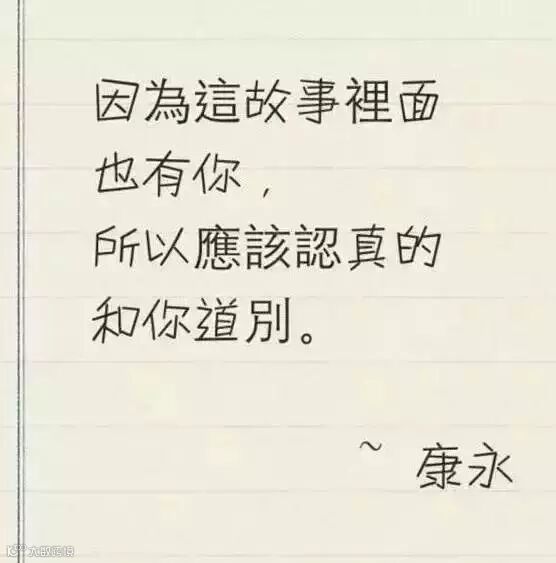 因為這故事裡面
也有你，
所以應該認真的
和你道別。
~ 康永